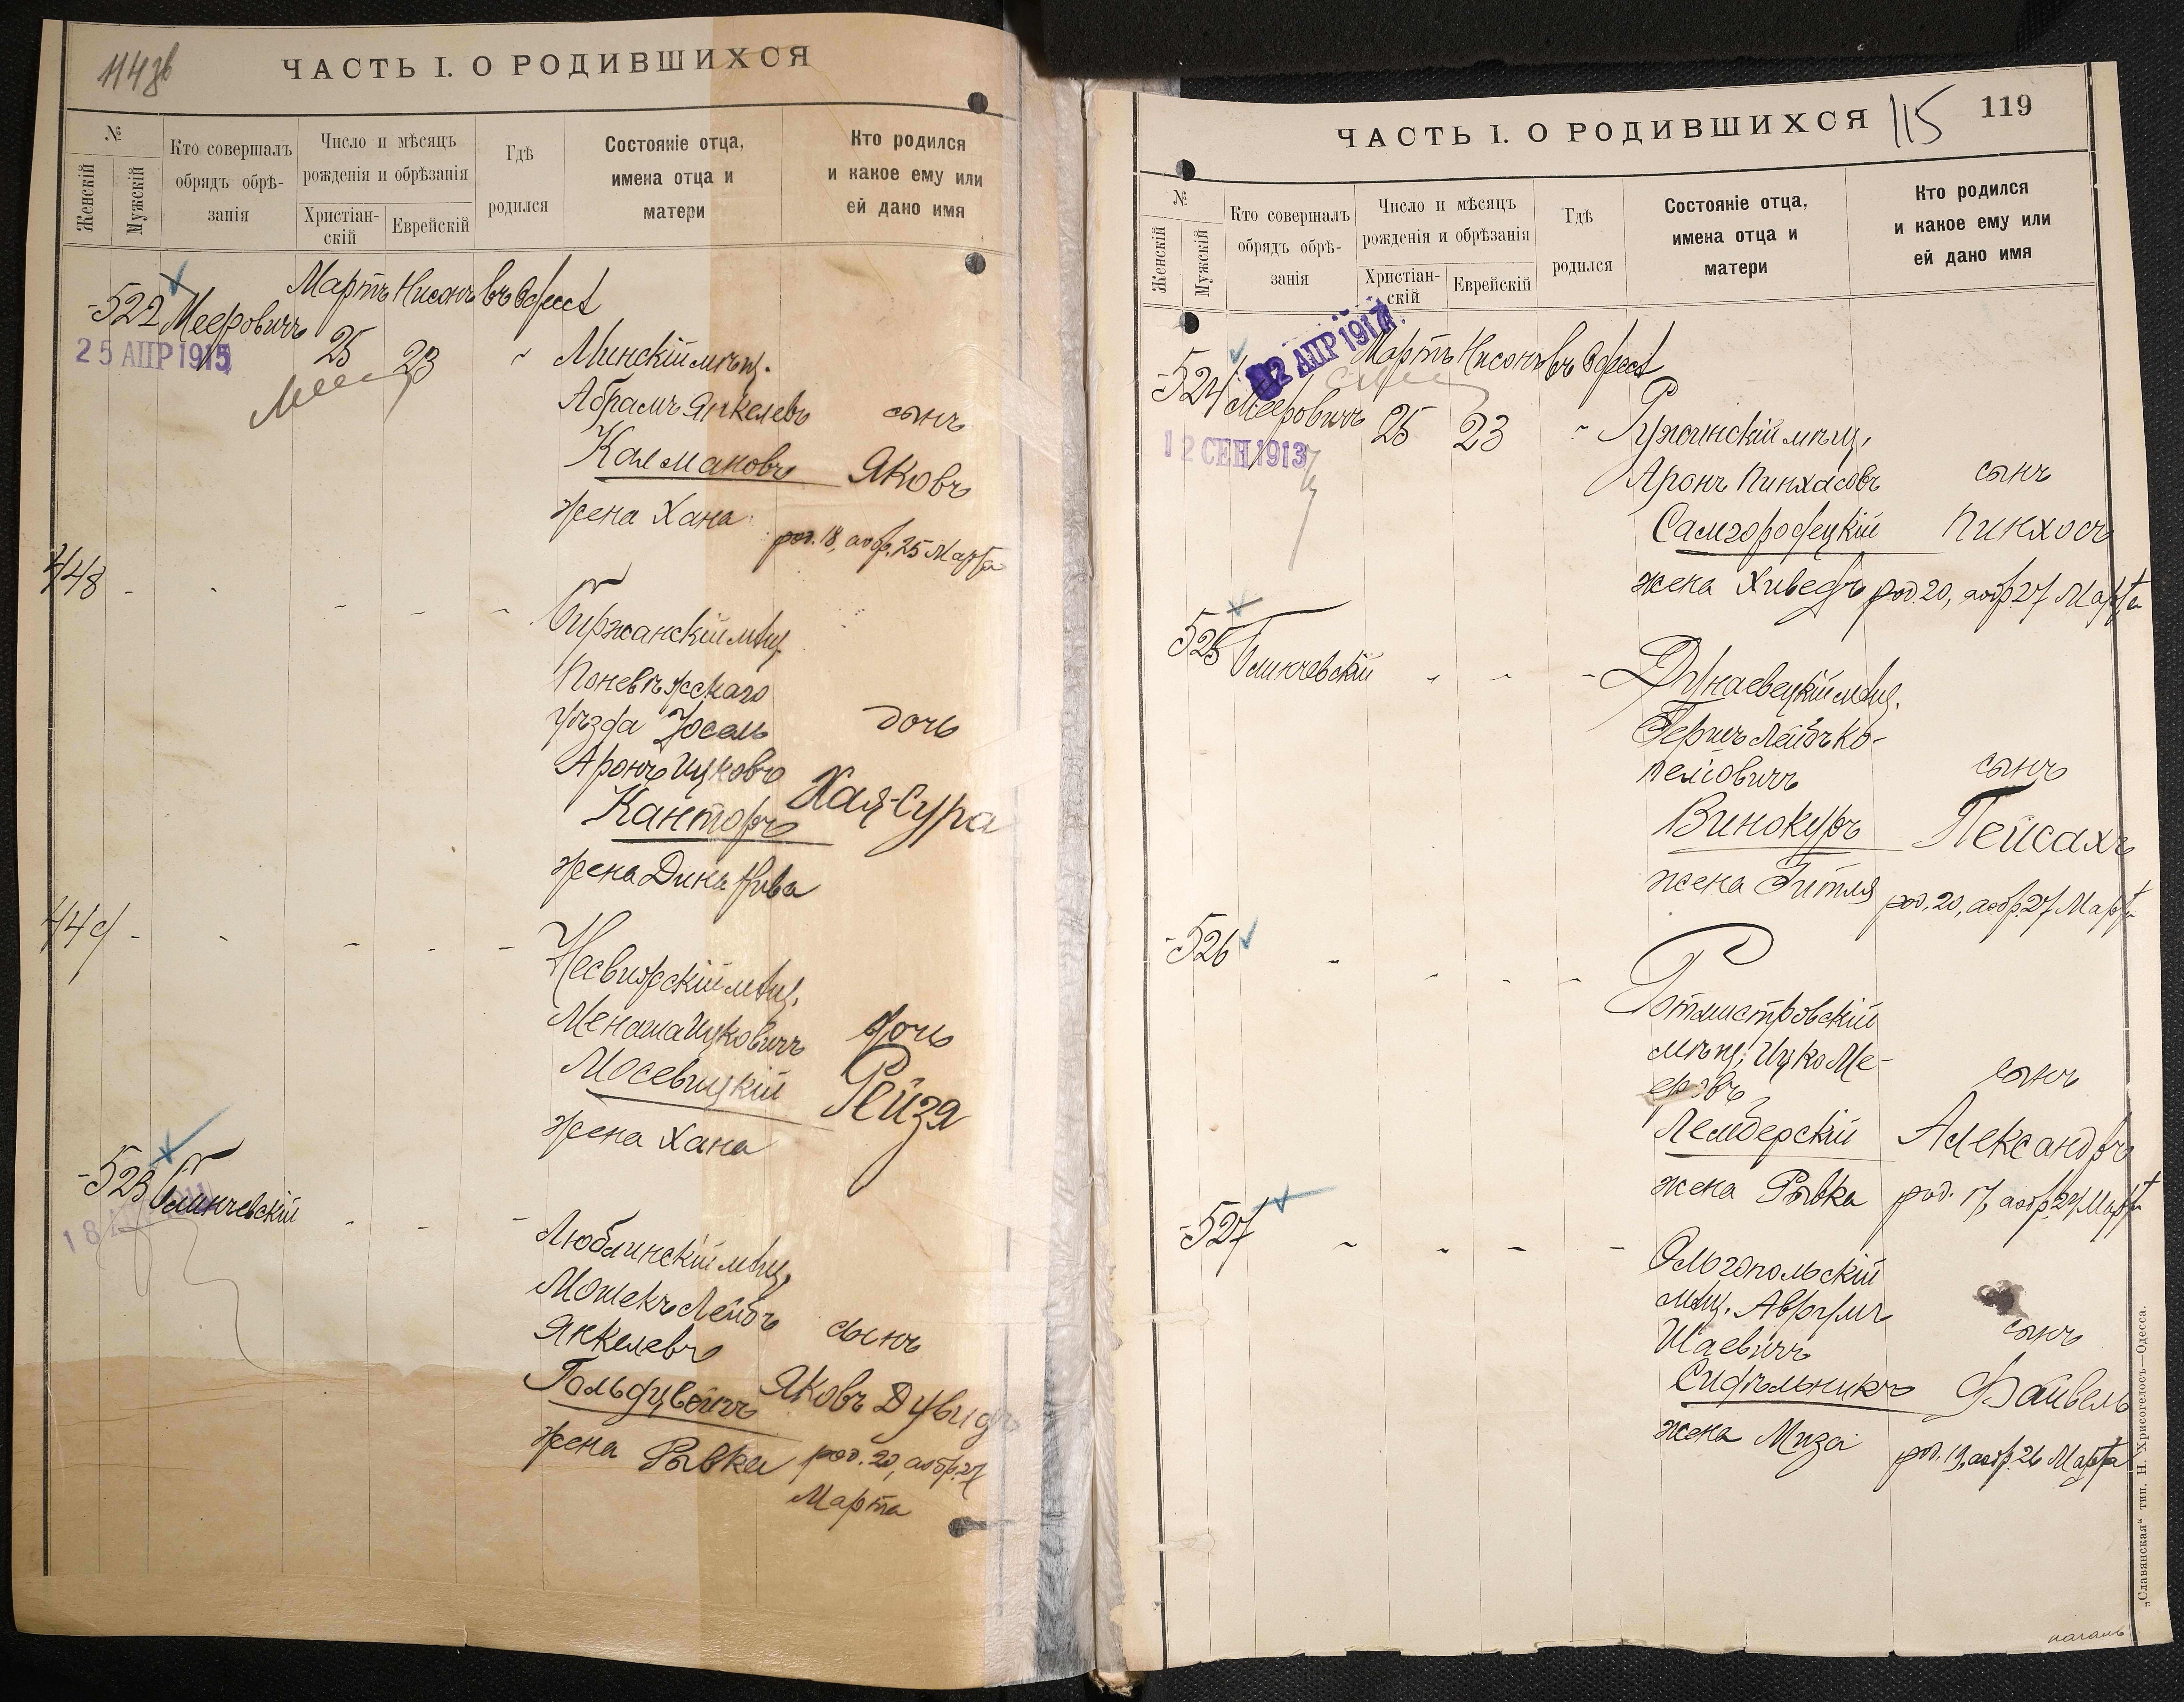 114 об
ЧАСТЬ I. О РОДИВШИХСЯ
№
Женскій
Мужскій
Кто совершалъ
обрядъ обрѣ-
занія
Число и мѣсяцъ
рожденія и обрѣзанія
Христіан-
скій
Еврейскій
Гдѣ
родился
Состояніе отца,
имена отца и
матери
Кто родился
и какое ему или
ей дано имя
Мартъ Нисонъ въ Одессѣ
522 Мееровичъ 25 23 " Минскій мѣщ.
25 АПР 1915
Абрамъ Янкелевъ сынъ
Калмановъ Яковъ
жена Хана
род. 18, а обр. 25 Марта
448 - - - - - Биржанскій мѣщ.
Поневѣжскаго
уѣзда Іосель дочь
Аронъ Ицковъ
Канторъ Хая-Сура
жена Дина Рива
449 - - - - - Несвижскій мѣщ.
Менаша Ицковичъ дочь
Мосевицкій Рейзя
жена Хана
523 Блинчевскій - - - -
18
Люблинскій мѣщ.
Мошекъ Лейбъ
Янкелевъ сынъ
Гольдцвейгъ Яковъ Дувидъ
жена Рывка род. 20, а обр. 27
Марта
ЧАСТЬ I. О РОДИВШИХСЯ
115
119
№
Женскій
Мужскій
Кто совершалъ
обрядъ обрѣ-
занія
Число и мѣсяцъ
рожденія и обрѣзанія
Христіан-
скій
Еврейскій
Гдѣ
родился
Состояніе отца,
имена отца и
матери
Кто родился
и какое ему или
ей дано имя
АПР 1914
Мартъ Нисонъ въ Одессѣ
524 Мееровичъ 25 23 " Ружинскій мѣщ.
12 СЕН 1913
Аронъ Пинхасовъ сынъ
Самгородецкій Пинхосъ
жена Хиведъ род. 20, а обр. 27 Марта
525 Блинчевскій - - - Дунаевецкій мѣщ.
Гершъ Лейбъ Ко-
пелiовичъ сынъ
Винокуръ Пейсахъ
жена Гитля род. 20, а обр. 27 Марта
526 - - - - Ротмистровскій
мѣщ. Ицко Ме-
еровъ сынъ
Лемберскій Александръ
жена Рывка род. 17, а обр. 24 Марта
527 - - - - Ольгопольскій
мѣщ. Аврумъ
Шаевичъ сынъ
Сидѣльникъ Файвель
жена Миза род. 19, а обр. 26 Марта
„Славянская“ тип. Н. Хрисогелосъ—Одесса.